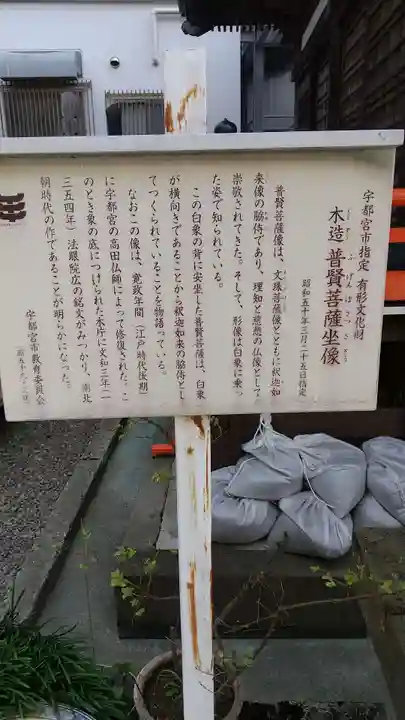 宇都宮市指定 有形文化財
木造 普賢菩薩坐像
昭和五十年三月二十五日指定
普賢菩薩像は、文殊菩薩像とともに釈迦如
来像の脇侍であり、理知と慈悲の仏像として
崇敬されてきた。そして、形像は白象に乗っ
た姿で知られている。
この白象の背に安坐した普賢菩薩は、白象
が横向きであることから釈迦如来の脇侍とし
てつくられていることを物語っている。
なおこの像は、寛政年間(江戸時代後期)
に宇都宮の高田仏師によって修復された。こ
のとき象の底につけられた木片に文和三年(一
三五四年)法眼院広の銘文がみつかり、南北
朝時代の作であることが明らかになった。
宇都宮市教育委員会